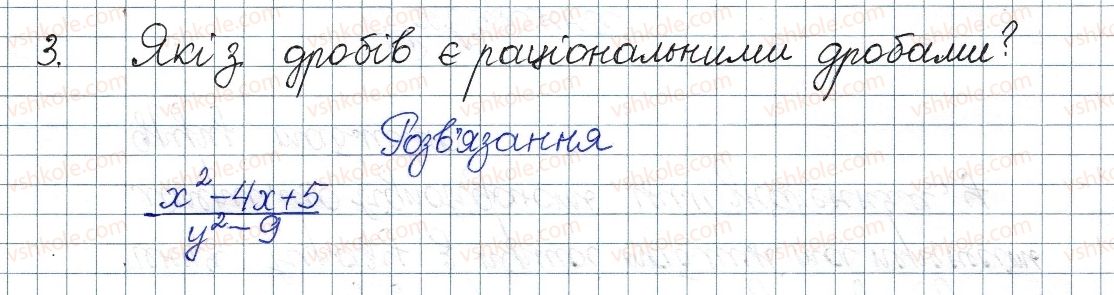 3. Які з дробів є раціональними дробами?
Розв'язання
x² - 4x + 5
y² - 9